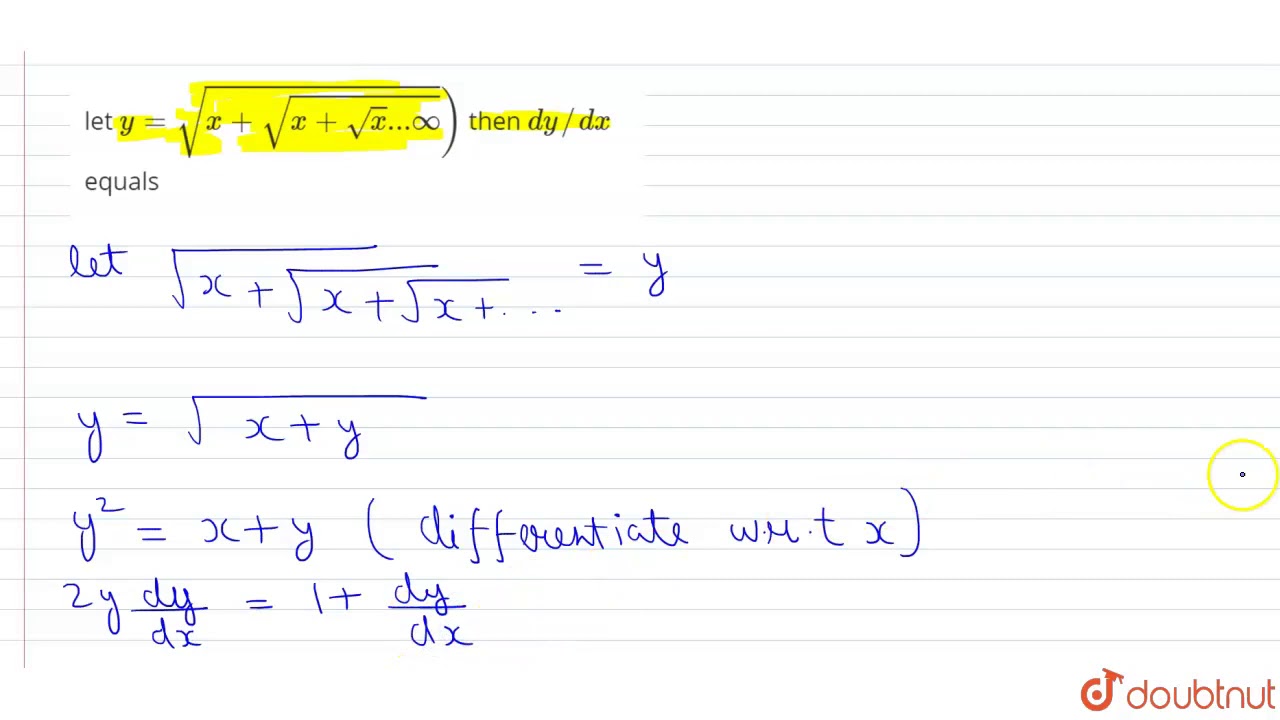 let y = √(x + √(x + √x...∞)) then dy/dx
equals
let √(x + √(x + √(x + ... = y
y = √(x + y)
y² = x + y ( differentiate w.r.t x )
2y dy/dx = 1 + dy/dx
doubtnut